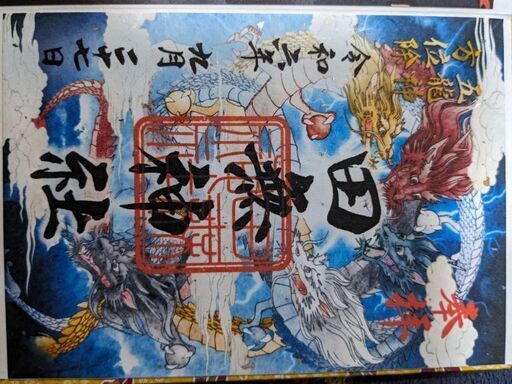 奉拝
田無神社
五龍神
方位除
令和六年九月二十七日